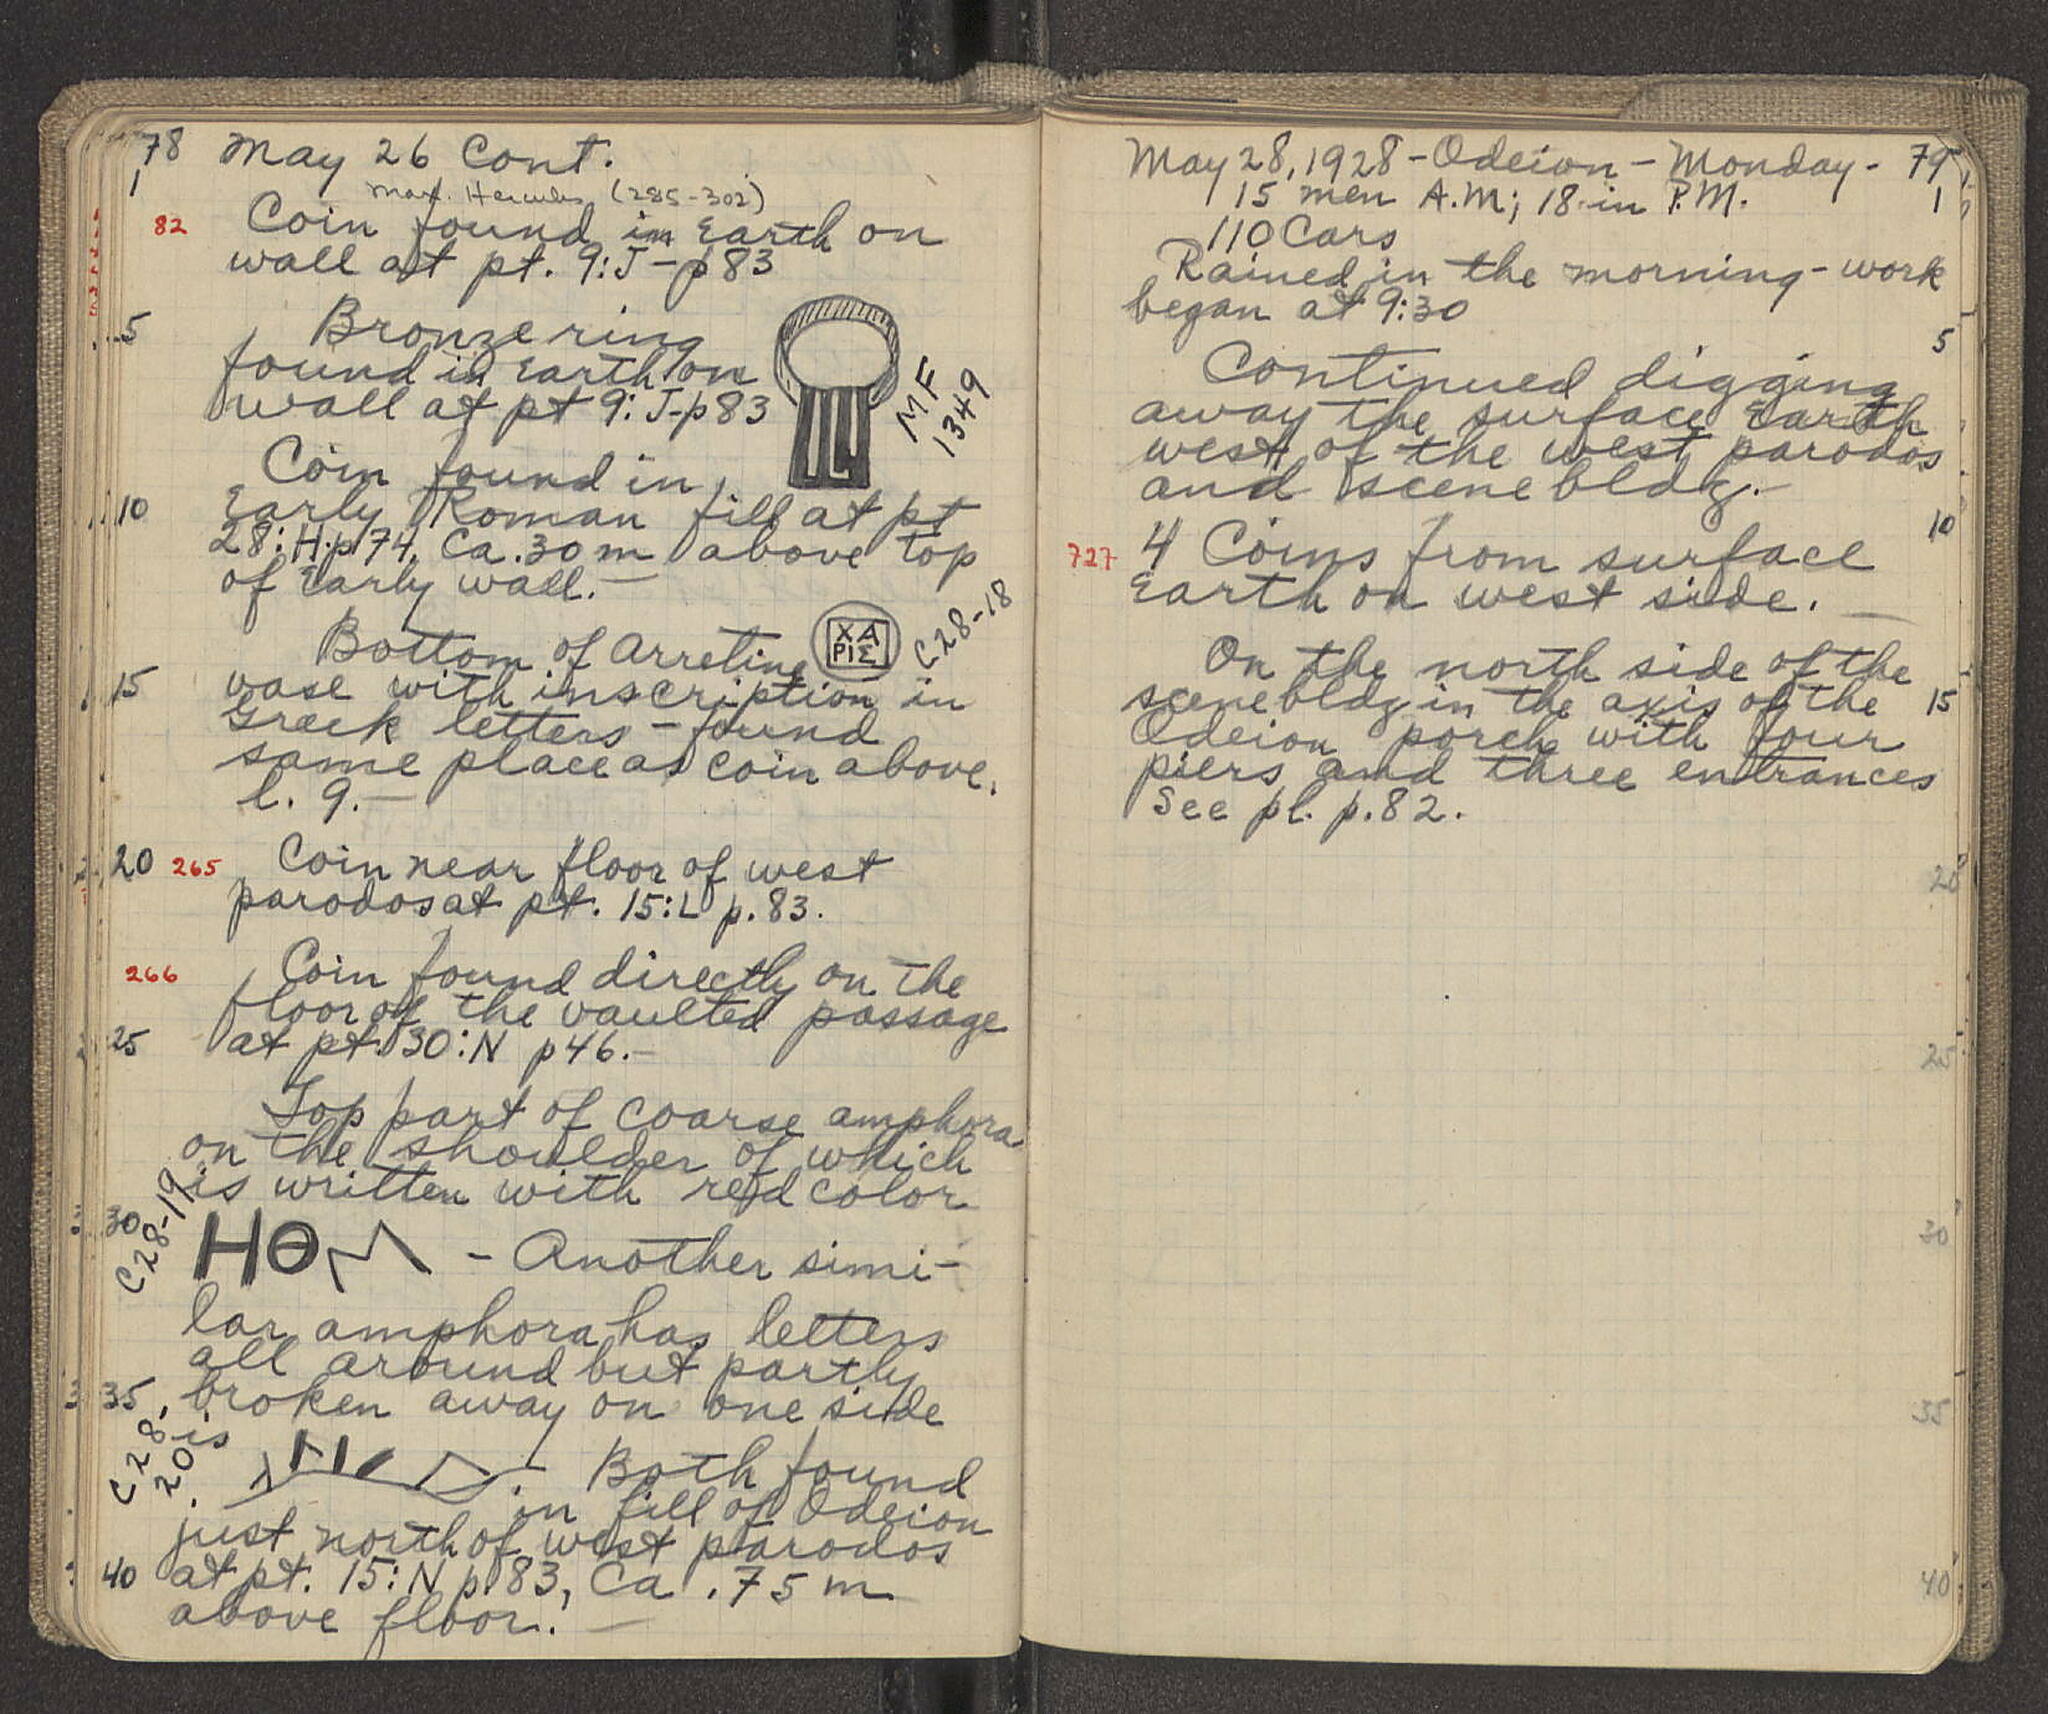 78 May 26 Cont.
1
Max. Hercules (285-302)
82 Coin found in Earth on
wall at pt. 9:J-p83
5 Bronze ring
found in Earth on
wall at pt 9:J-p83
MF
1349
Coin found in
10 Early Roman fill at pt
28:H.p74, Ca .30m above top
of Early wall.-
Bottom of Arretine
ΧΑ
ΡΙΣ
C28-18
15 vase with inscription in
Greek letters - found
same place as coin above,
l. 9.-
20 265 Coin near floor of west
parodos at pt. 15:L p.83.
266 Coin found directly on the
floor of the vaulted passage
25 at pt. 30:N p46.-
Top part of coarse amphora
on the shoulder of which
is written with red color
30 C28-19
HΘ - Another simi-
lar amphora has letters
all around but partly
35 broken away on one side
C28-20
is . Both found
in fill of Odeion
just north of west parodos
40 at pt. 15:N p.83, Ca .75m
above floor.-
May 28, 1928 - Odeion - Monday - 79
15 men A.M; 18 in P.M. 1
110 Cars
Rained in the morning - work
began at 9:30
5
Continued digging
away the surface Earth
west of the west parodos
and scene bldg.-
10
727 4 Coins from surface
Earth on west side.-
On the north side of the
scene bldg in the axis of the 15
Odeion porch with four
piers and three entrances
See pl. p.82.
20
25
30
35
40